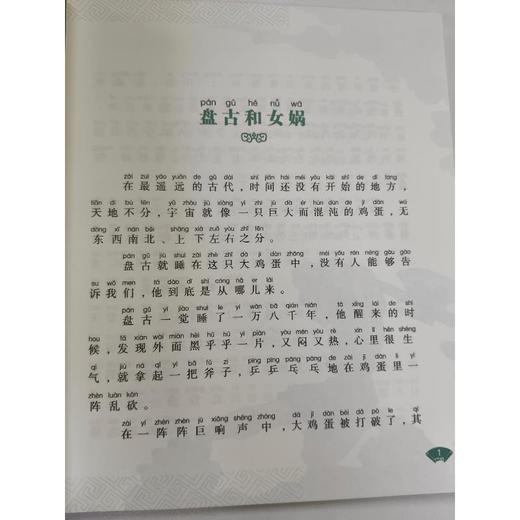 pán gǔ hé nǚ wā
盘古和女娲
zài zuì yáo yuǎn de gǔ dài shí jiān hái méi yǒu kāi shǐ de dì fang
在最遥远的古代，时间还没有开始的地方，
tiān dì bù fēn yǔ zhòu jiù xiàng yì zhī jù dà ér hùn dùn de jī dàn wú
天地不分，宇宙就像一只巨大而混沌的鸡蛋，无
dōng xī nán běi shàng xià zuǒ yòu zhī fēn
东西南北、上下左右之分。
pán gǔ jiù shuì zài zhè zhī dà jī dàn zhōng méi yǒu rén néng gòu gào
盘古就睡在这只大鸡蛋中，没有人能够告
su wǒ men tā dào dǐ shì cóng nǎ er lái
诉我们，他到底是从哪儿来。
pán gǔ yí jiào shuì le yí wàn bā qiān nián tā xǐng lái de shí
盘古一觉睡了一万八千年，他醒来的时
hou fā xiàn wài miàn hēi hū hū yí piàn yòu mèn yòu rè xīn lǐ hěn shēng
候，发现外面黑乎乎一片，又闷又热，心里很生
qì jiù ná qǐ yì bǎ fǔ zi pīng pīng pāng pāng de zài jī dàn lǐ yí
气，就拿起一把斧子，乒乒乓乓地在鸡蛋里一
zhèn luàn kǎn
阵乱砍。
zài yí zhèn zhèn jù xiǎng shēng zhōng dà jī dàn bèi dǎ pò le qí
在一阵阵巨响声中，大鸡蛋被打破了，其
1